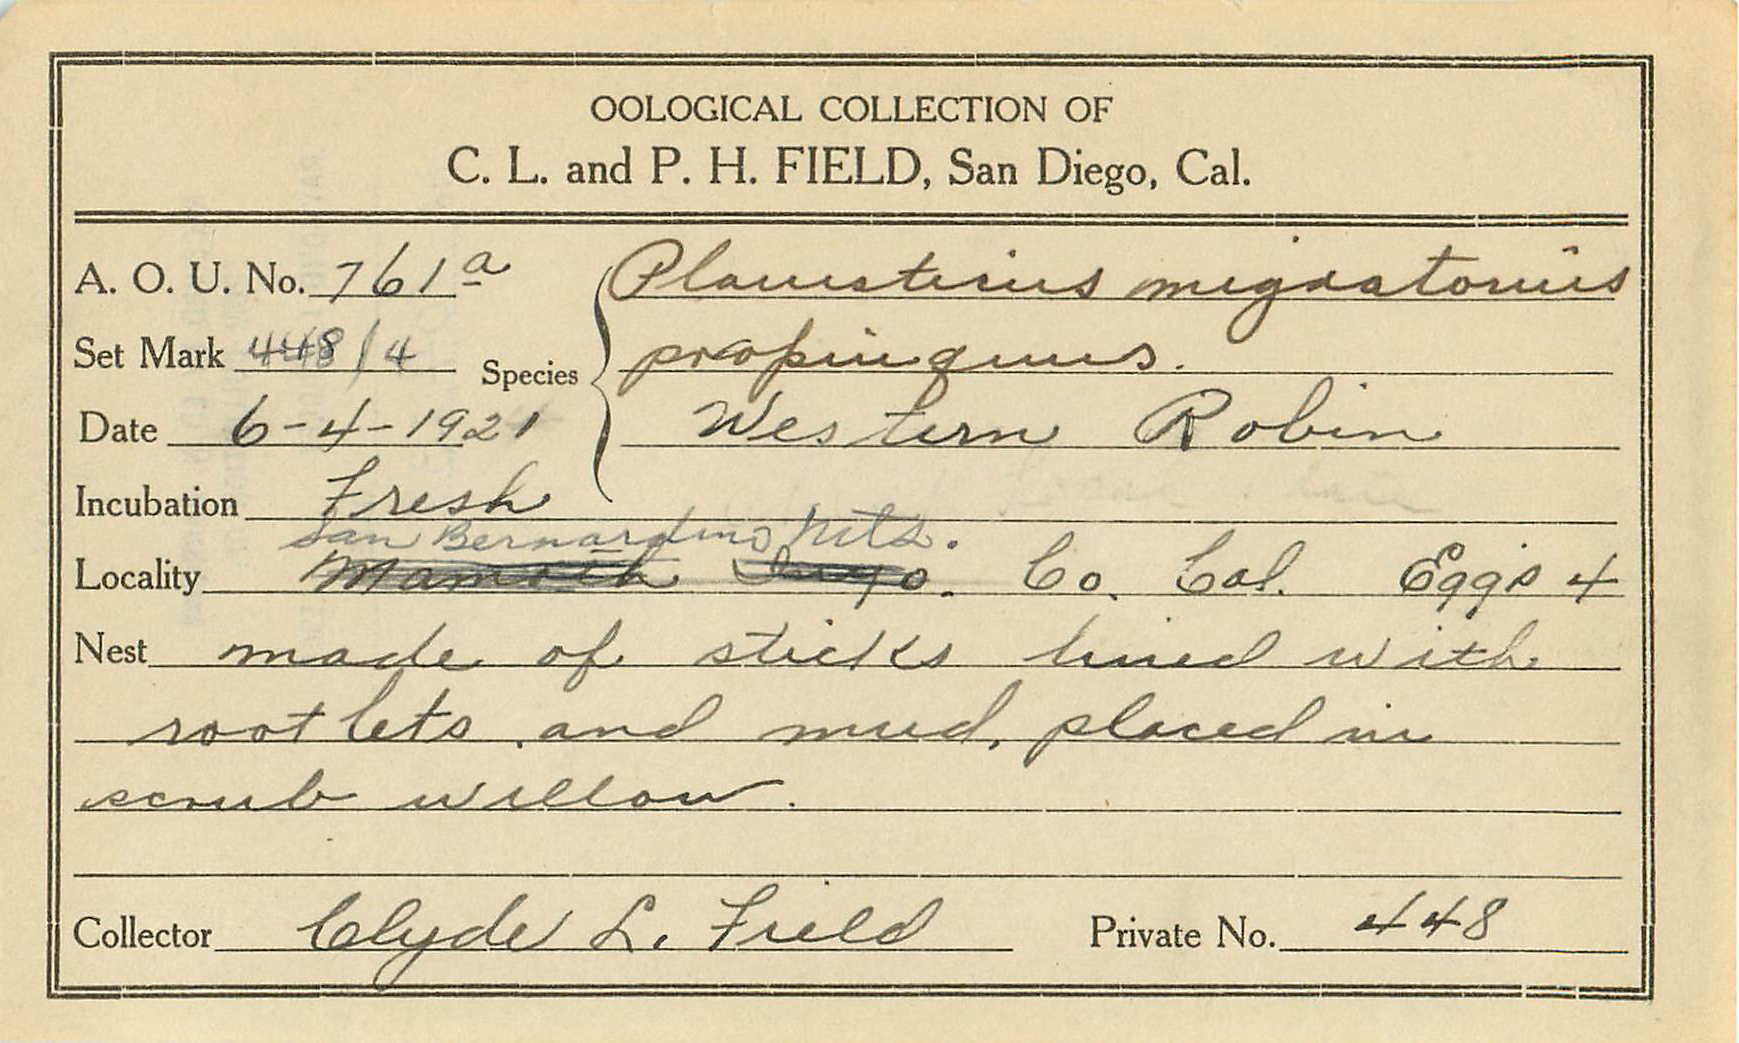 OOLOGICAL COLLECTION OF
C. L. and P. H. FIELD, San Diego, Cal.
A. O. U. No. 761a
Planesticus migratorius
Set Mark 448/4
Species
propinquus.
Date 6-4-1921
Western Robin
Incubation Fresh
San Bernardino Mts.
Locality Mamoth Inyo. Co. Cal. Eggs 4
Nest made of sticks lined with
rootlets and mud, placed in
scrub willow.
Collector Clyde L. Field
Private No. 448